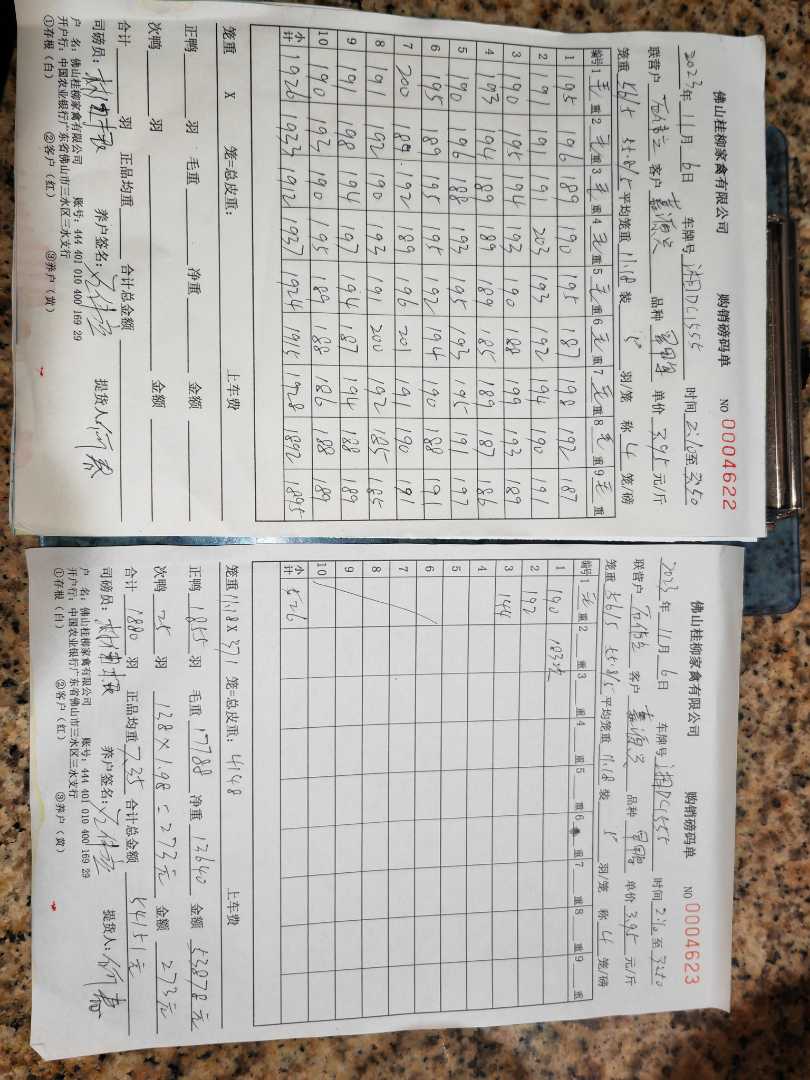 佛山桂柳家禽有限公司 购销磅码单 NO 0004622
2023年11月6日 车牌号 湘DC1555 时间 2:10至3:50
联营户 石伟立 客户 嘉源兴 品种 单价 3.95元/斤
笼重 56/5 55.8/5 平均笼重 11.18 装 5 羽/笼 称 4 笼/磅
编号 1 毛重 2 毛重 3 毛重 4 毛重 5 毛重 6 毛重 7 毛重 8 毛重 9 毛重
1 195 196 189 190 195 187 198 192 187
2 191 191 191 203 193 192 194 190 191
3 190 195 194 193 190 188 199 193 189
4 193 194 189 189 189 185 189 187 186
5 190 196 188 193 195 193 195 191 197
6 195 189 195 195 192 194 190 188 191
7 200 189 192 189 196 201 191 190 191
8 191 192 190 193 191 200 192 185 185
9 191 198 194 197 194 187 194 188 189
10 190 193 190 195 189 188 186 188 189
小计 1926 1933 1912 1937 1924 1915 1928 1892 1895
笼重 X 笼=总皮重: 上车费
正鸭 羽 毛重 净重 金额
次鸭 羽 金额
合计 羽 正品均重 合计总金额
司磅员: 养户签名: 石伟立 提货人: 何
户 名: 佛山桂柳家禽有限公司 账号: 444 401 010 400 169 29
开户行: 中国农业银行广东省佛山市三水区三水支行
①存根(白) ②客户(红) ③养户(黄)
佛山桂柳家禽有限公司 购销磅码单 NO 0004623
2023年11月6日 车牌号 湘DC1555 时间 2:10至3:50
联营户 石伟立 客户 嘉源兴 品种 单价 3.95元/斤
笼重 56/5 55.8/5 平均笼重 11.18 装 5 羽/笼 称 4 笼/磅
编号 1 毛重 2 重 3 重 4 重 5 重 6 重 7 重 8 重 9 重
1 190
2 192
3 144
4
5
6
7
8
9
10
小计 526
笼重 11.18 X 371 笼=总皮重: 4148 上车费
正鸭 1855 羽 毛重 17788 净重 13640 金额 53878元
次鸭 25 羽 138×1.98=273元 金额 273元
合计 1880 羽 正品均重 7.35 合计总金额 54151元
司磅员: 养户签名: 石伟立 提货人: 何
户 名: 佛山桂柳家禽有限公司 账号: 444 401 010 400 169 29
开户行: 中国农业银行广东省佛山市三水区三水支行
①存根(白) ②客户(红) ③养户(黄)